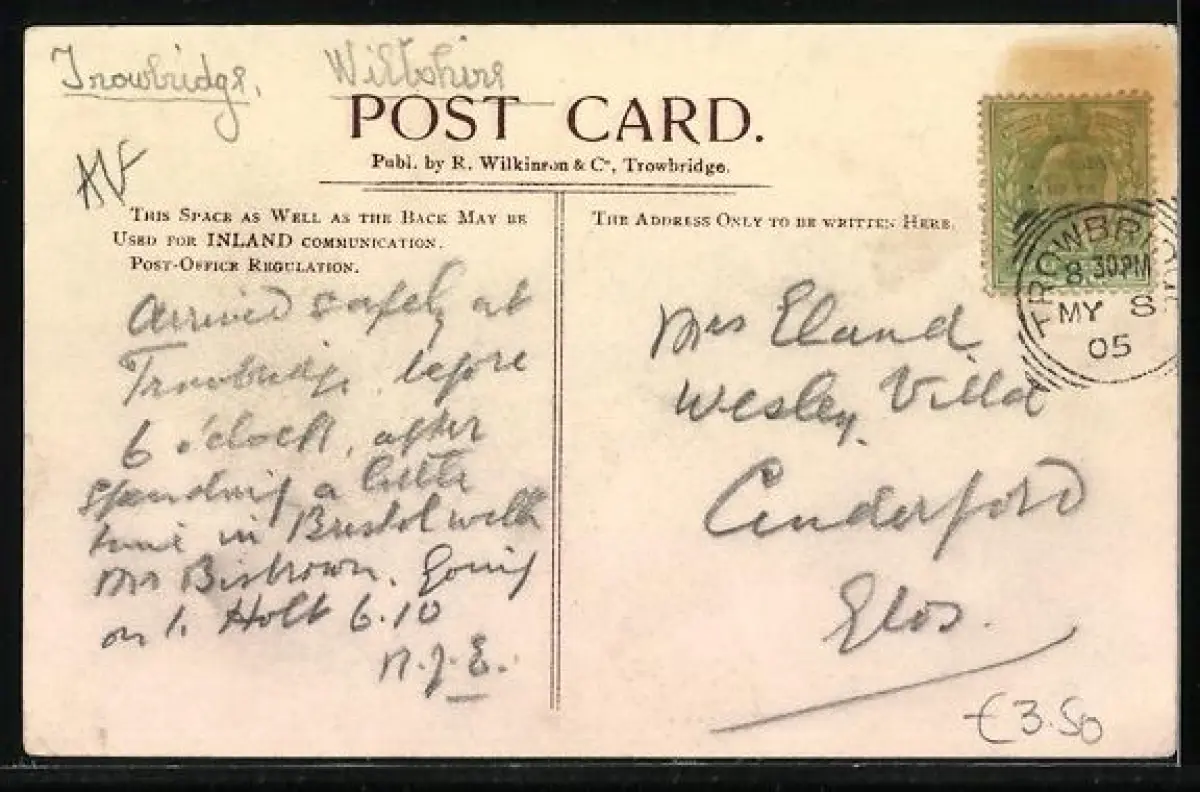 Trowbridge, Wiltshire
POST CARD.
Publ. by R. Wilkinson & Co, Trowbridge.
This Space as Well as the Back May be
Used for INLAND communication.
Post-Office Regulation.
The Address Only to be written Here.
TROWBRIDGE
8.30PM
MY 8
05
Arrived safely at
Trowbridge before
6 o'clock, after
spending a little
time in Bristol with
Mr Bisbrown. Going
on to Holt 6.10
N.J.E.
Mrs Eland
Wesley Villa
Cinderford
Glos.
€3.50